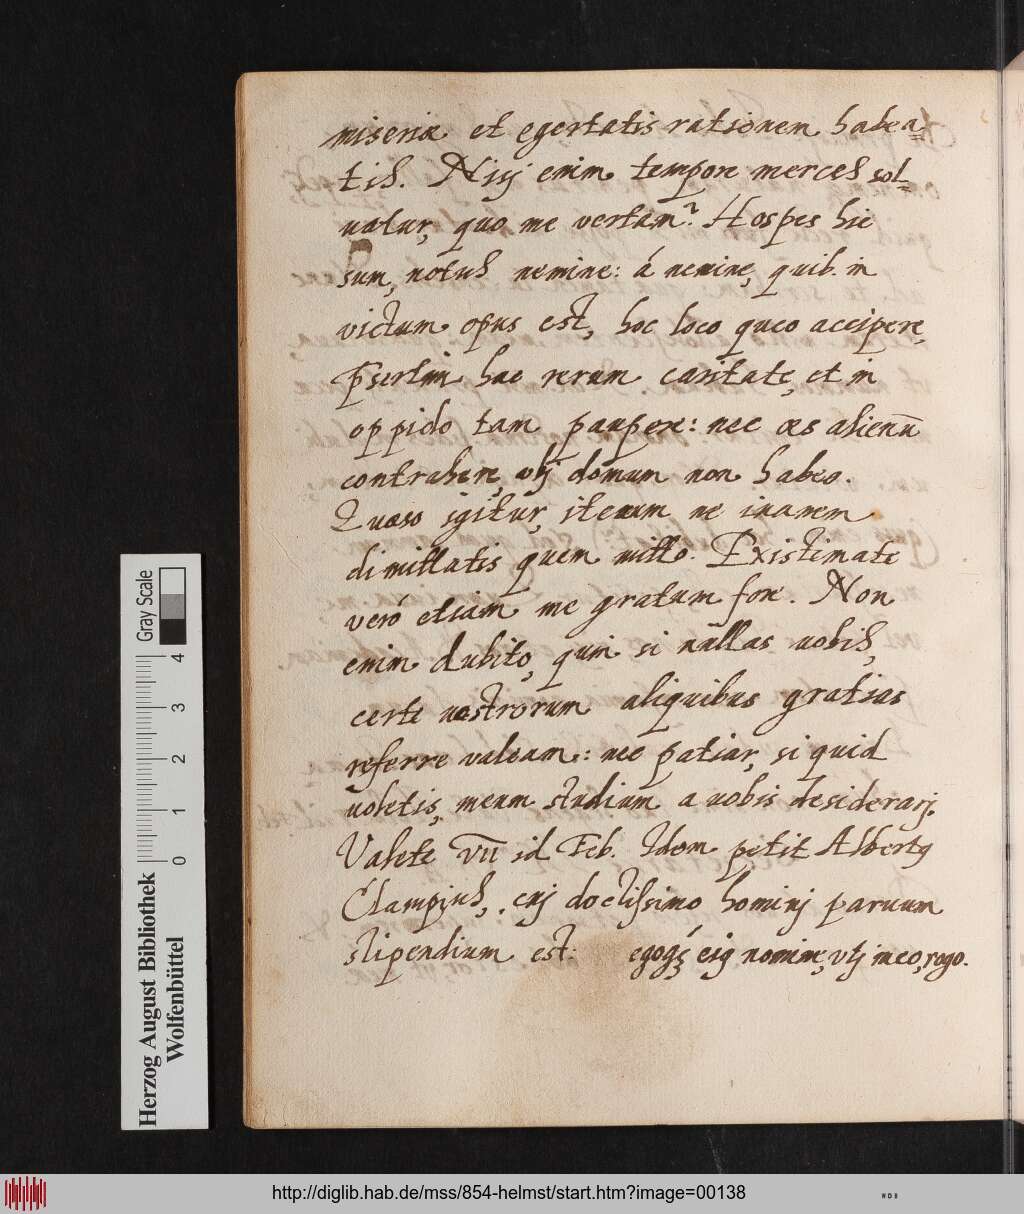 miseriæ et egestatis rationem habea=
tis. Nisi enim tempore merces sol=
uatur, quo me vertam? Hospes hic
sum, notus nemine: á nemine, quib. in
victum opus est, hoc loco queo accipere,
p̄sertim hac rerum caritate, et in
oppido tam paupere: nec æs alienū
contrahere, vbj domum non habeo.
Quæso igitur, iterum ne inanem
dimittatis quem mitto. Existimate
veró etiam me gratum fore. Non
enim dubito, quin si nullas uobis,
certe uestrorum aliquibus gratias
referre valeam: nec patiar, si quid
uoletis, meum studium a uobis desiderarj.
Valete VII id Feb. Idem petit Albertꝰ
Clampius, cuj doctissimo hominj paruum
stipendium est. egoq́ꝫ eiꝰ nomine, vtj meo, rogo.
Gray Scale
0 1 2 3 4
Herzog August Bibliothek
Wolfenbüttel
http://diglib.hab.de/mss/854-helmst/start.htm?image=00138
WDB